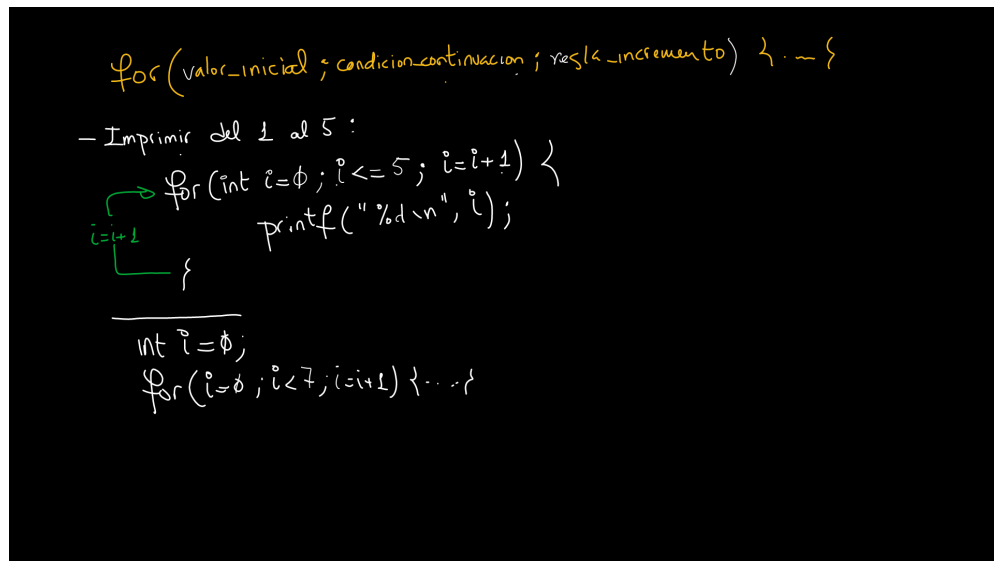 for(valor_inicial ; condicion_continuacion ; regla_incremento) {...}
- Imprimir del 1 al 5:
for(int i=0; i<=5; i=i+1) {
printf("%d\n", i);
i=i+1
}
int i=0;
for(i=0; i<7; i=i+1) {...}